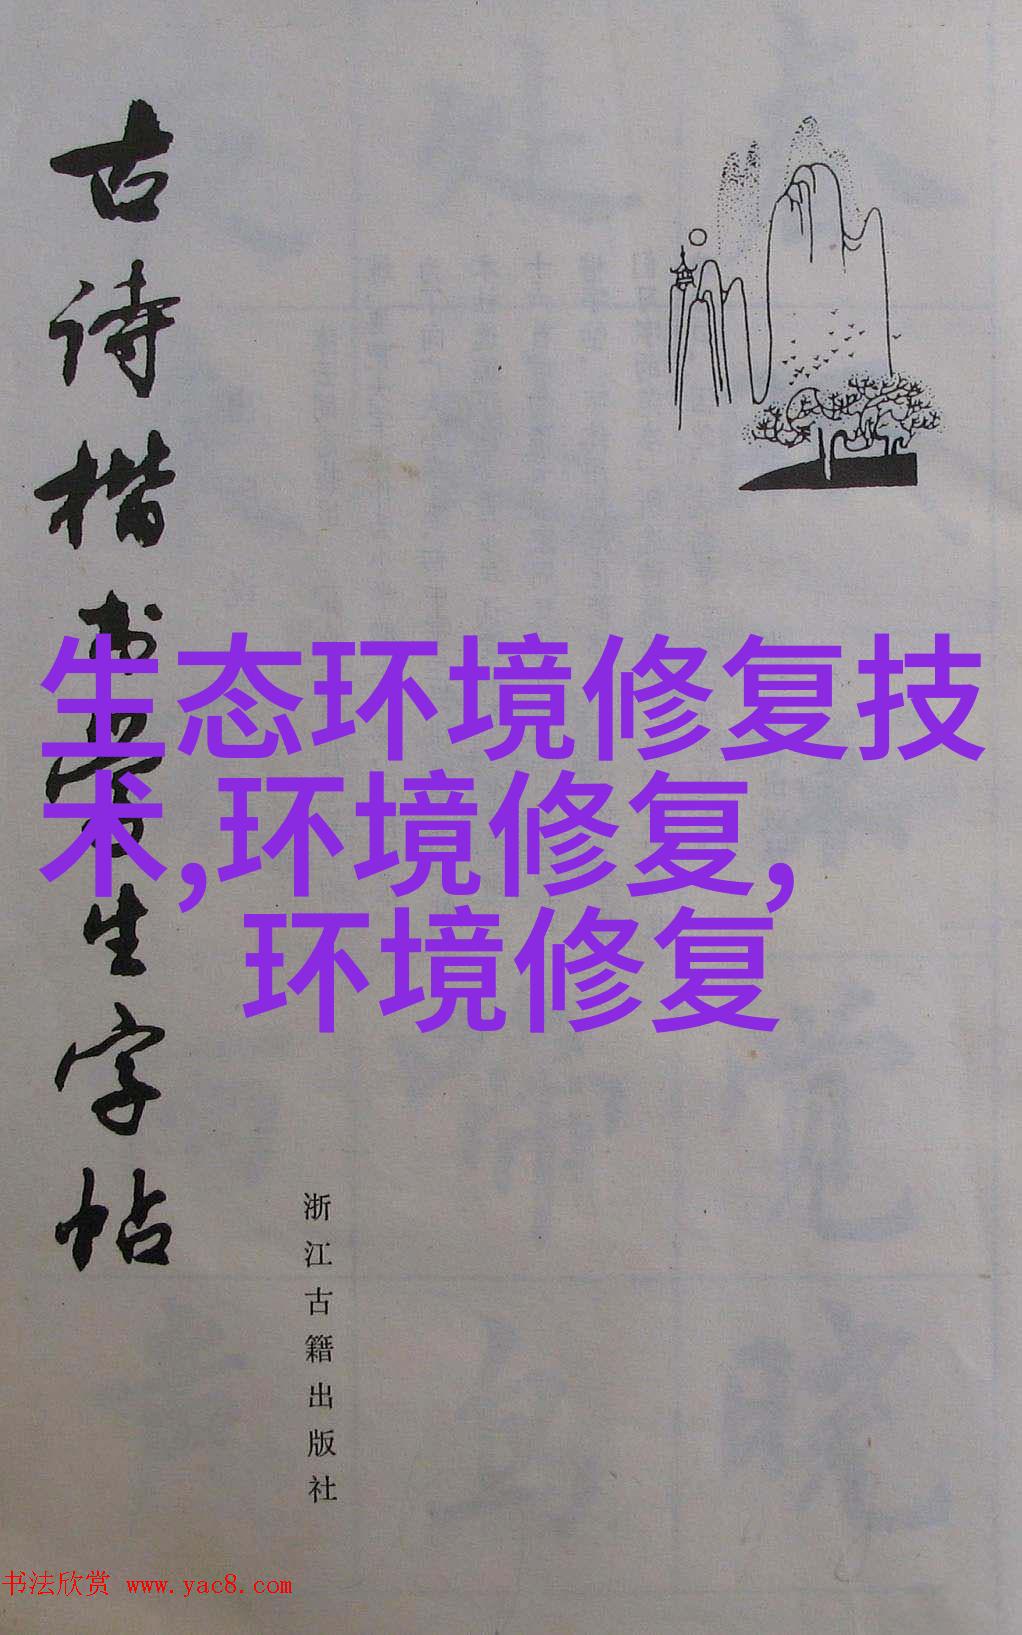 古诗楷书学生字帖
生态环境修复技
术,环境修复,
环境修复
浙江古籍出版社
书法欣赏 www.yac8.com